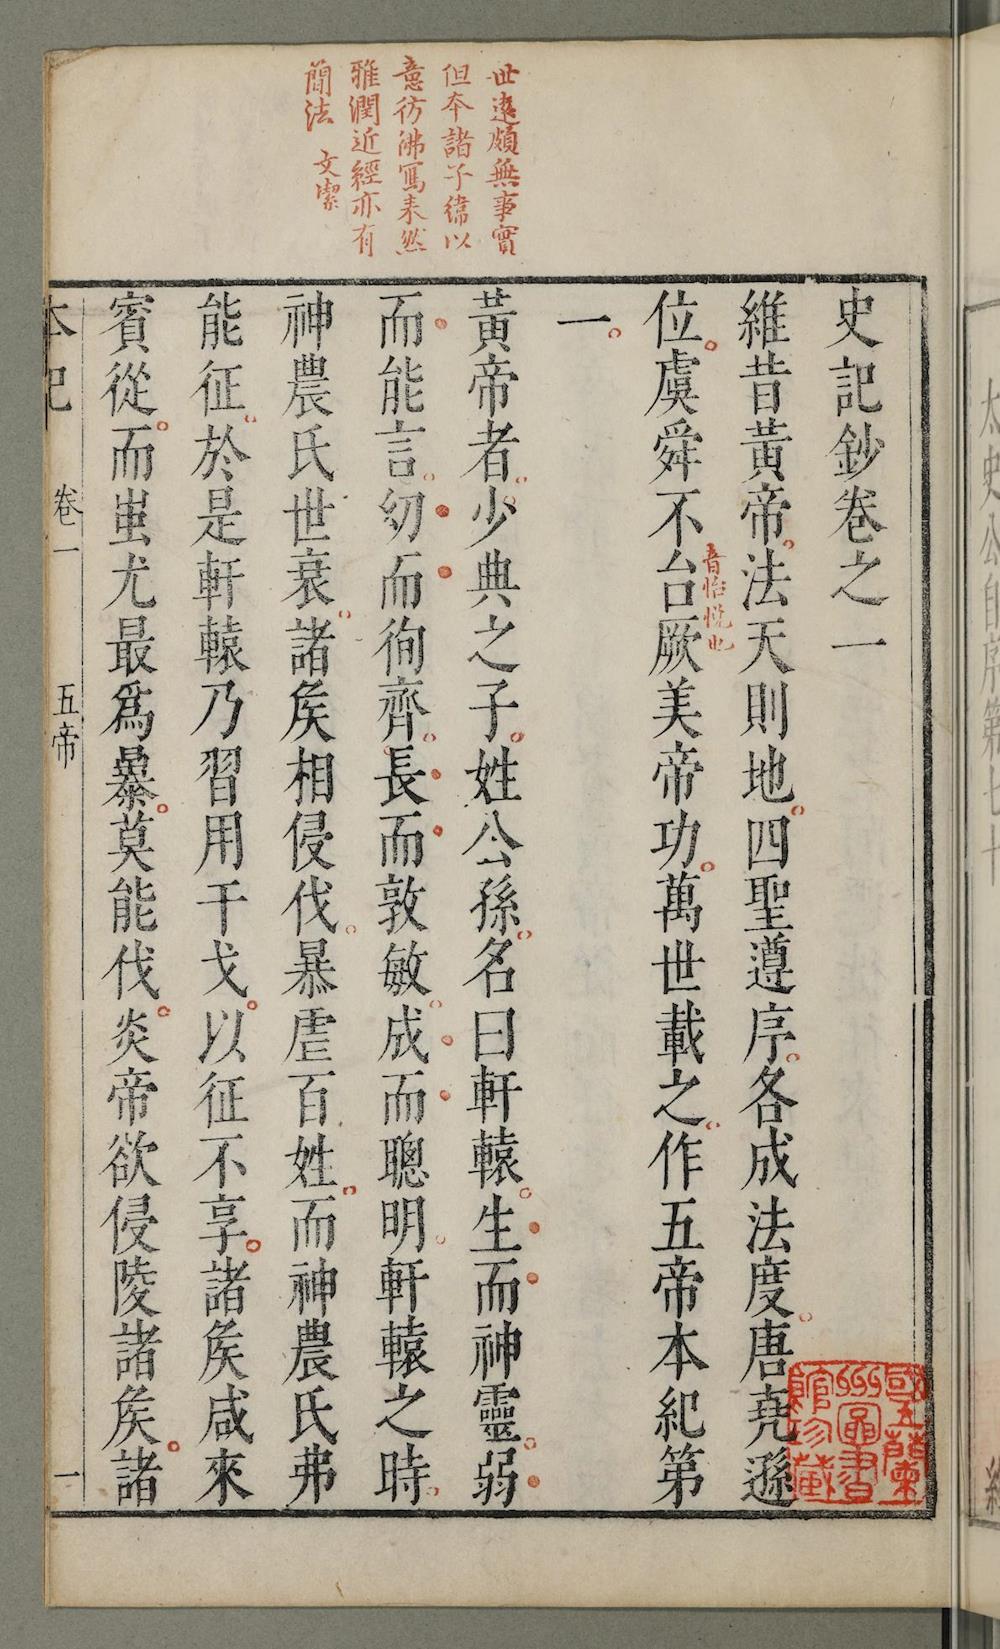 世遠頗無事實
但本諸子緯以
意彷彿寫来然
雅潤近經亦有
簡法 文潔
史記鈔卷之一
維昔黃帝法天則地四聖遵序各成法度唐堯遜
位虞舜不台厥美帝功萬世載之作五帝本紀第
音怡悅也
一
黃帝者少典之子姓公孫名曰軒轅生而神靈弱
而能言幼而徇齊長而敦敏成而聰明軒轅之時
神農氏世衰諸矦相侵伐暴虐百姓而神農氏弗
能征於是軒轅乃習用干戈以征不享諸矦咸來
賓從而蚩尤最爲暴莫能伐炎帝欲侵陵諸矦諸
本紀 卷一 五帝 一
國立蘭州圖書館珍藏
太史公自序第七十